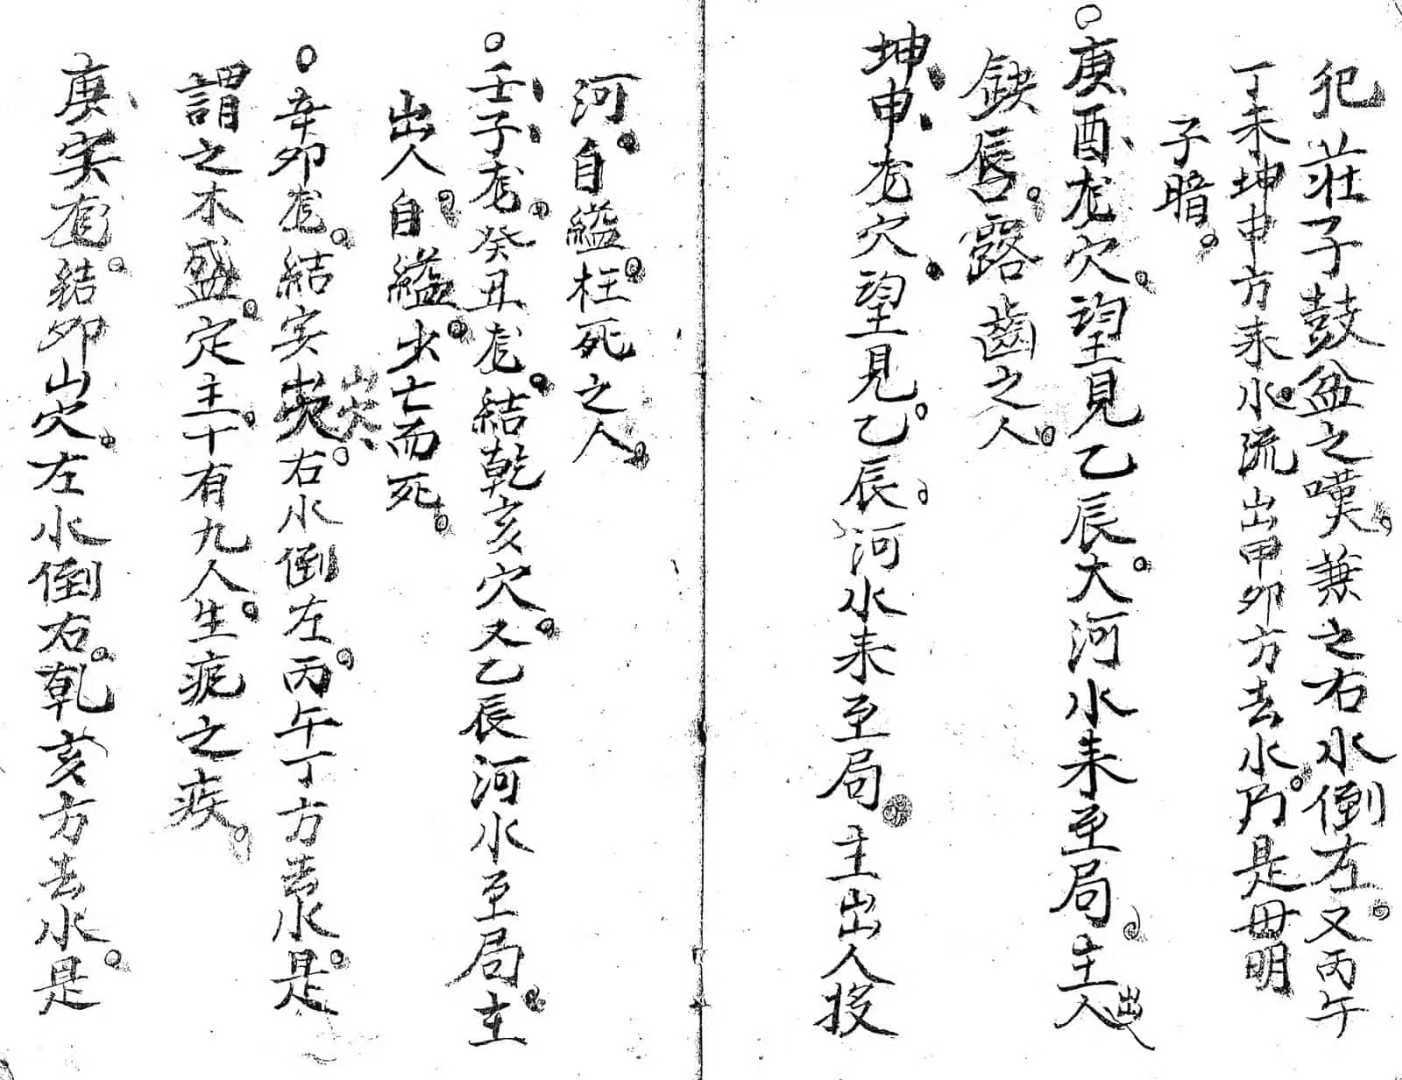 犯莊子鼓盆之嘆。兼之右水倒左。又丙午
丁未坤申方来水。流出甲卯方去水。乃是毋明
子暗。
○庚酉龙穴。望見乙辰大。河水来至局。主出人
缺唇。露齒之人。
坤申龙穴。望見乙。辰。河水来至局。主出人投
河。自縊。枉死之人。
○壬子龙。癸丑龙。結乾亥穴。又乙辰河水至局。主
出人自。縊。少亡而死。
○辛卯龙。結亥山穴。右水倒左。丙午丁方去水。是
謂之木盛。定主。十有九人生。疯之疾。
庚亥龙。結卯山穴。左水倒右。乾亥方去水。是